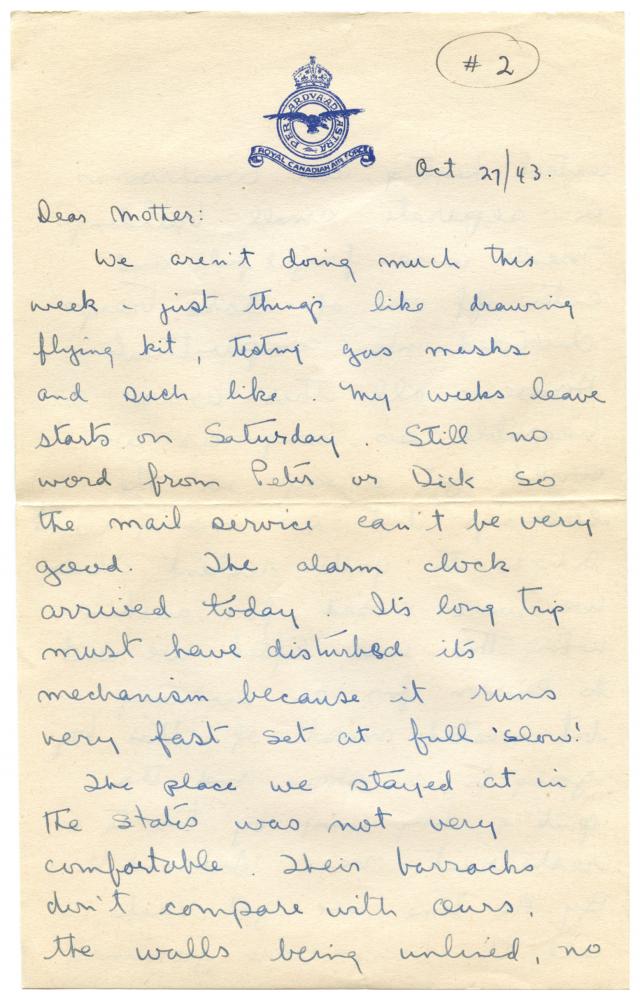 # 2
PER ARDVA AD ASTRA
ROYAL CANADIAN AIR FORCE
Oct 27/43.
Dear Mother:
We aren't doing much this
week - just things like drawing
flying kit, testing gas masks
and such like. My weeks leave
starts on Saturday. Still no
word from Peter or Dick so
the mail service can't be very
good. The alarm clock
arrived today. Its long trip
must have disturbed its
mechanism because it runs
very fast set at full 'slow'.
The place we stayed at in
the States was not very
comfortable. Their barracks
don't compare with ours,
the walls being unlined, no